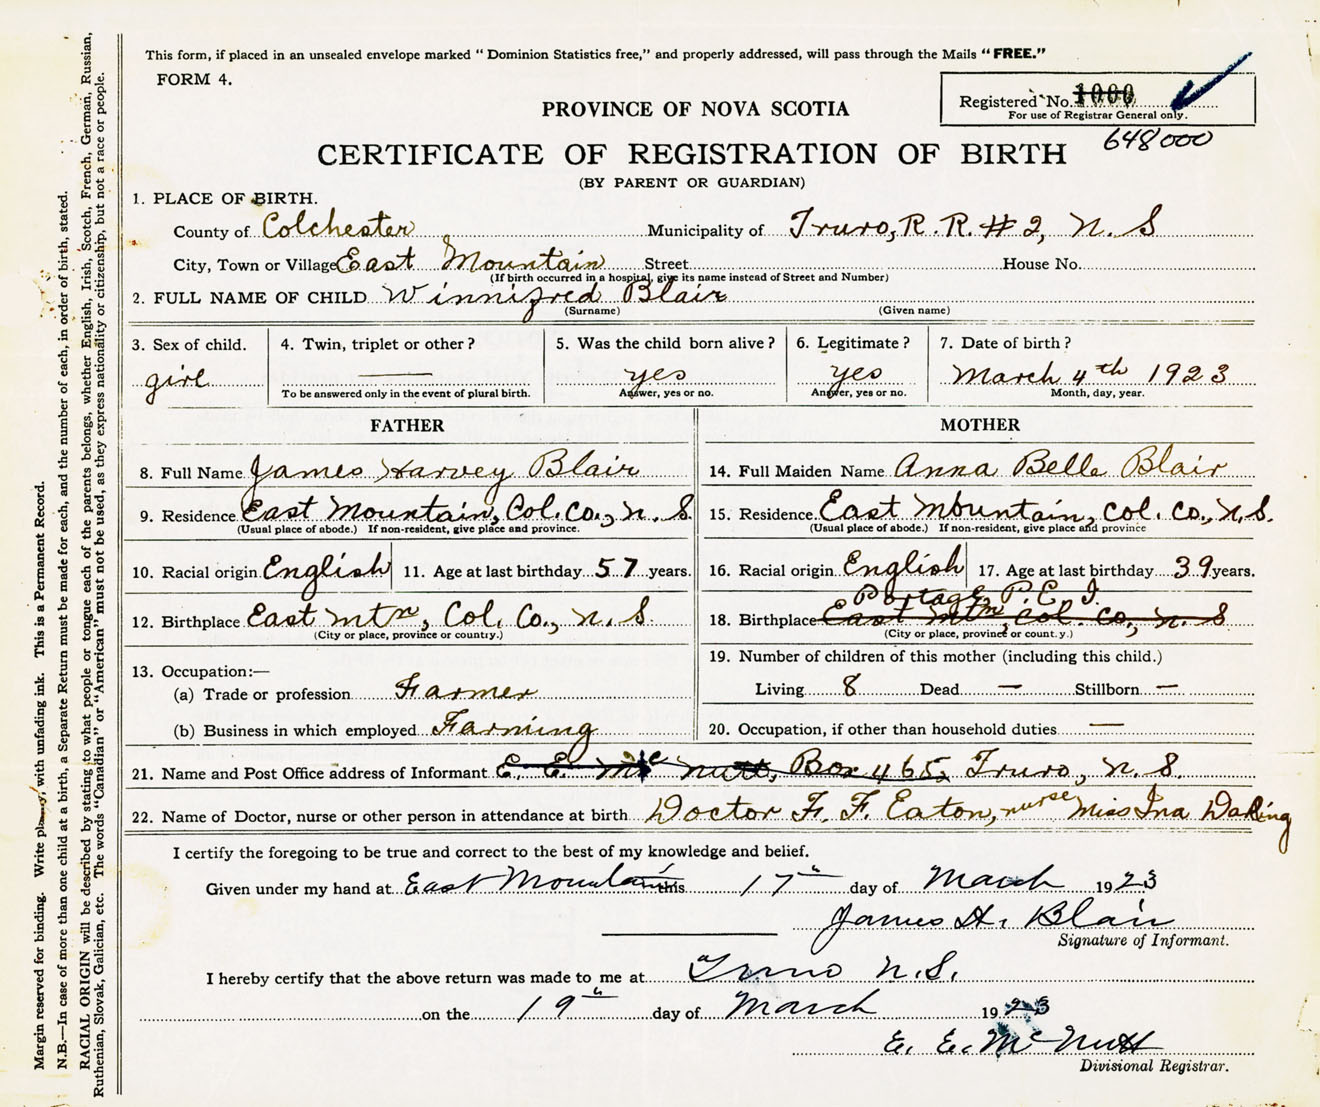 This form, if placed in an unsealed envelope marked " Dominion Statistics free," and properly addressed, will pass through the Mails " FREE."
FORM 4.
Registered No. 1000
For use of Registrar General only.
648000
PROVINCE OF NOVA SCOTIA
CERTIFICATE OF REGISTRATION OF BIRTH
(BY PARENT OR GUARDIAN)
1. PLACE OF BIRTH.
County of Colchester Municipality of Truro, R. R. # 2, N. S
City, Town or Village East Mountain Street House No.
(If birth occurred in a hospital, give its name instead of Street and Number)
2. FULL NAME OF CHILD Winnifred Blair
(Surname) (Given name)
3. Sex of child. 4. Twin, triplet or other ? 5. Was the child born alive ? 6. Legitimate ? 7. Date of birth ?
girl — yes yes March 4th 1923
To be answered only in the event of plural birth. Answer, yes or no. Answer, yes or no. Month, day, year.
FATHER MOTHER
8. Full Name James Harvey Blair 14. Full Maiden Name Anna Belle Blair
9. Residence East Mountain, Col. Co., N. S 15. Residence East Mountain, Col. Co., N. S.
(Usual place of abode.) If non-resident, give place and province. (Usual place of abode.) If non-resident, give place and province
10. Racial origin English 11. Age at last birthday 57 years. 16. Racial origin English 17. Age at last birthday 39 years.
Portage P. E. I.
12. Birthplace East Mtn, Col. Co., N. S. 18. Birthplace East Mtn, Col. Co, N. S
(City or place, province or country.) (City or place, province or count.y.)
19. Number of children of this mother (including this child.)
13. Occupation:—
(a) Trade or profession Farmer Living 8 Dead — Stillborn —
(b) Business in which employed Farming 20. Occupation, if other than household duties —
21. Name and Post Office address of Informant E. E. McNutt, Box 465, Truro, N. S.
22. Name of Doctor, nurse or other person in attendance at birth Doctor F. F. Eaton, nurse Miss Ina
I certify the foregoing to be true and correct to the best of my knowledge and belief.
Given under my hand at East Mountain this 17th day of March 1923
James H. Blair
Signature of Informant.
I hereby certify that the above return was made to me at Truro N.S.
on the 19th day of March 1923
E. E. McNutt
Divisional Registrar.
Margin reserved for binding. Write plainly, with unfading ink. This is a Permanent Record.
N.B.—In case of more than one child at a birth, a Separate Return must be made for each, and the number of each, in order of birth, stated.
RACIAL ORIGIN will be described by stating to what people or tongue each of the parents belongs, whether English, Irish, Scotch, French, German, Russian,
Ruthenian, Slovak, Galician, etc. The words "Canadian" or "American" must not be used, as they express nationality or citizenship, but not a race or people.